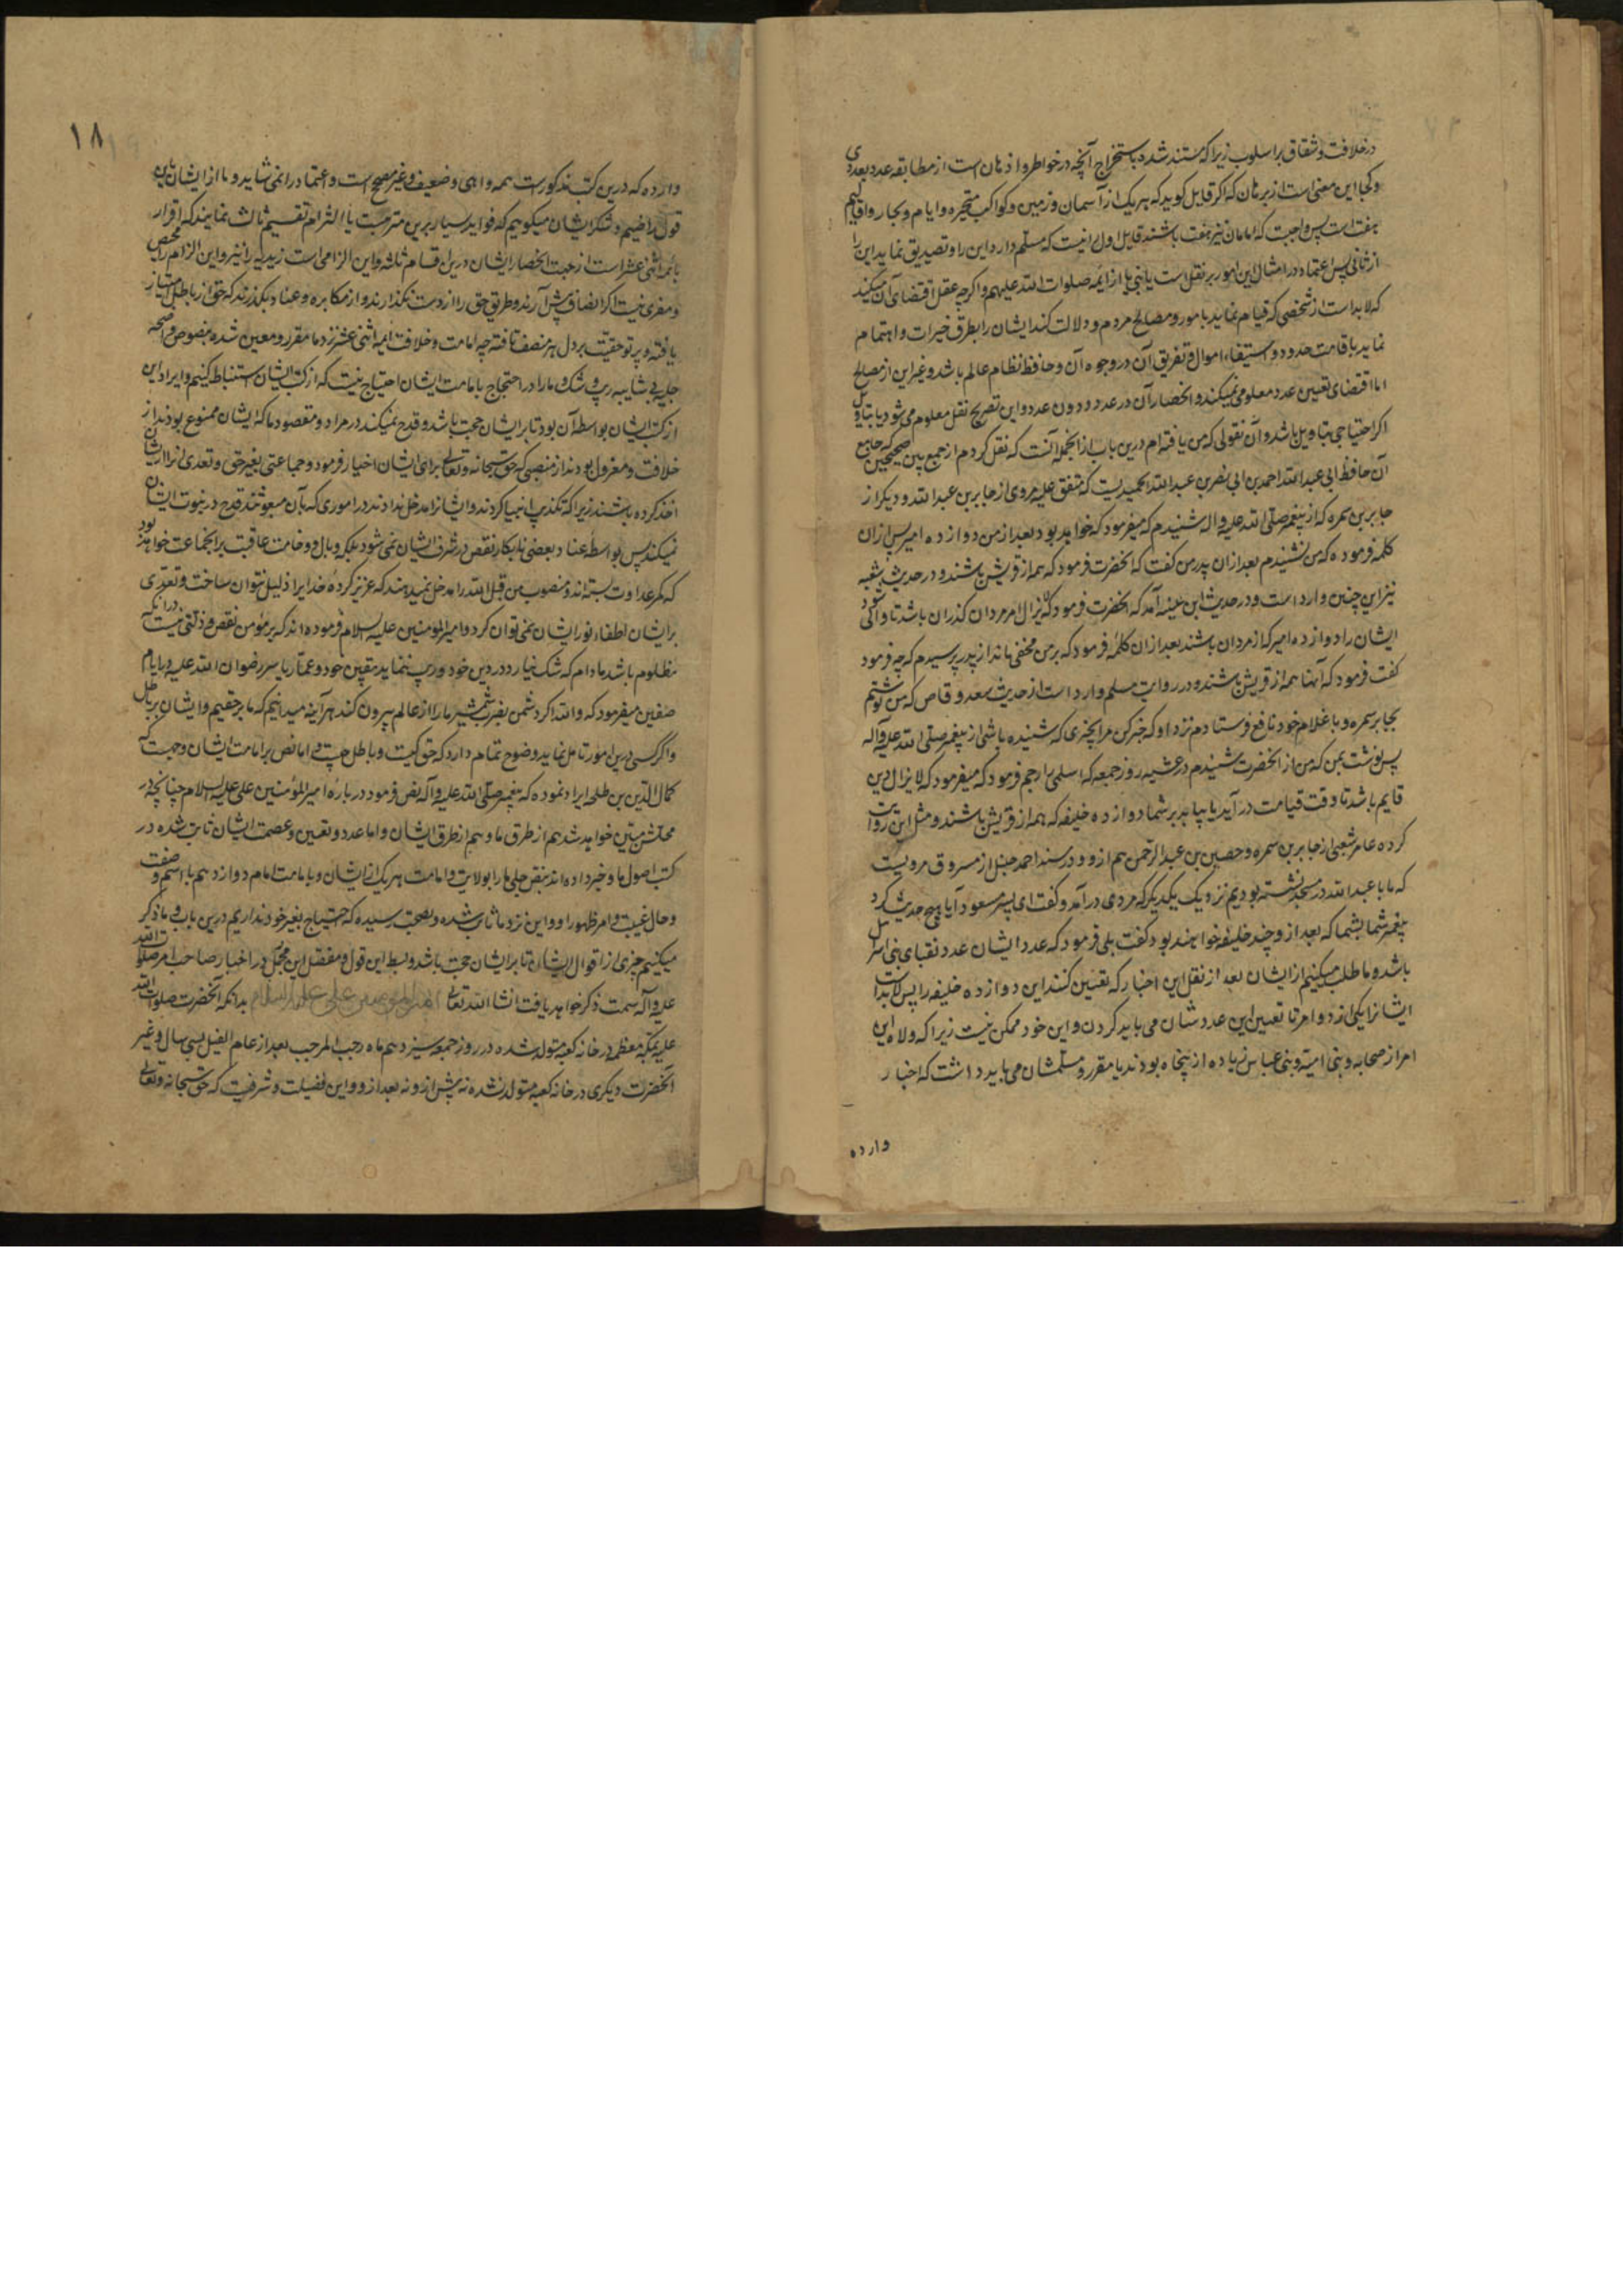 در خلافت و شقاق بر اسلوب زیرا که مستند شده باستخراج آنچه در خواطر و اذهان است از مطابقه عدد بعددی
و کجا این معنی است از برهان که اگر قایل کوید که هر یک از آسمان و زمین و کواکب متحیره و ایام و بحار و اقالیم
هفت است پس واجبت که امامان نیز هفت باشند قایل اول نیست که مسلم دارد این را و تصدیق نماید این را
از ثانی پس اعتماد در امثال این امور بر نقل است یا نبی یا از ایمه صلوات الله علیهم و اکرچه عقل اقتضای آن میکند
که لابد است از شخصی که قیام نماید بامور و مصالح مردم و دلالت کند ایشان را بطرق خیرات و اهتمام
نماید باقامت حدود و استیفاء اموال و تفریق آن در وجوه آن و حافظ نظام عالم باشد و غیر این از مصالح
اما اقتضای تعیین عدد معلومی نمیکند و انحصار آن در عدد دون عدد و این تصریح نقل معلوم می شود یا بتاویل
اکر احتیاجی بتاویل باشد و آن نقولی که من یافته ام درین باب از انجمله آنست که نقل کردم از جمع بین صحیحین جامع
آن حافظ ابی عبدالله احمد بن ابی نصر بن عبدالله الحمیدیست که متفق علیه مروی از جابر بن عبدالله و دیکر از
جابر بن سمره که از پیغمبر صلی الله علیه و اله شنیدم که میفرمود که خواهد بود بعد از من دوازده امیر پس ازان
کلمه فرموده که من نشنیدم بعد ازان پدر من کفت که آنحضرت فرمود که همه از قریش باشند و در حدیث شعبه
نیز این چنین وارد است و در حدیث ابن عیینه آمد که آنحضرت فرمود که لا یزال امر مردان کذران باشد تا والی شود
ایشان را دوازده امیر که از مردان باشند بعد ازان کلمهٔ فرمود که بر من مخفی ماند از پدر پرسیدم که چه فرمود
کفت فرمود که آنها همه از قریش باشند و در روایت مسلم وارد است از حدیث سعد وقاص که من نوشتم
بجابر سمره و با غلام خود نافع فرستادم نزد او که خبر کن مرا بچیزی که شنیده باشی از پیغمبر صلی الله علیه و آله
پس نوشت بمن که من از آنحضرت شنیدم در عشیه روز جمعه که اسلمی را رجم فرمود که میفرمود که لا یزال دین
قایم باشد تا وقت قیامت در آید یا بیاید بر شما دوازده خلیفه که همه از قریش باشند و مثل این روایت
کرده عامر شعبی از جابر بن سمره و حصین بن عبدالرحمن هم ازو و در مسند احمد حنبل از مسروق مرویست
که ما با عبدالله در مسجد نشسته بودیم نزدیک یکدیکر که مردی در آمد و کفت ای پسر مسعود آیا هیچ حدیث کرد
پیغمبر شما بشما که بعد ازو چند خلیفه خواهند بود کفت بلی فرمود که عدد ایشان عدد نقبای بنی اسرائیل
باشد و ما طلب میکنیم از ایشان بعد از نقل این اخبار که تعیین کنند این دوازده خلیفه را پس لابداست
ایشانرا یکی از دو امر تا تعیین این عدد شان می باید کردن و این خود ممکن نیست زیرا که ولاه این
امر از صحابه و بنی امیه و بنی عباس زیاده از پنجاه بودند یا مقرر و مسلمشان می باید داشت که اخبار
وارده
۱۸
وارده که درین کتب مذکورست همه واهی و ضعیف و غیر صحیح است و اعتماد را نمی شاید و ما از ایشان باین
قول راضیم و شکر ایشان میکوییم که فواید بسیار برین مترتبست یا التزام تقسیم ثالث نمایند که اقرار
بائمه اثنی عشر است از جهت انحصار ایشان درین اقسام ثلثه و این الزامی است زیدیه را نیز و این الزام را محیص
و مفری نیست اکر انصاف پیش آرند و طریق حق را از دست نکذارند و از مکابره و عناد بکذرند که حق از باطل امتیاز
یافته و پرتو حقیقت بر دل هر منصف تافته چه امامت و خلافت ایمه اثنی عشر نزد ما مقرر و معین شده بنصوص واضحه
جلیه بی شایبه ریب و شک و ما را در احتجاج بامامت ایشان احتیاج نیست که از کتب ایشان استنباط کنیم و ایراد این
از کتب ایشان بواسطه آن بود تا بر ایشان حجت باشد و قدح نمیکند در مراد و مقصود ما که ایشان ممنوع بودند از
خلافت و معزول بودند از منصبی که حق سبحانه و تعالی برای ایشان اختیار فرمود و جماعتی بغیر حق و تعدی آنرا از ایشان
اخذ کرده باشند زیرا که تکذیب انبیا کردند و ایشانرا مدخل ندادند در اموری که بآن مبعوث شدند قدح در نبوت ایشان
نمیکند پس بواسطه عناد بعضی نابکار نقص در شرف ایشان نمی شود بلکه وبال و وخامت عاقبت بر انجماعت خواهد بود
که کمر عداوت بسته اند و منصوب من قبل الله را مدخل نمیدهند که عزیز کردهٔ خدایرا ذلیل نتوان ساخت و تعدی
بر ایشان اطفاء نور ایشان نمی توان کرد و امیرالمومنین علیه السلام فرموده اند که بر مؤمن نقص و ذلتی نیست در آنکه
مظلوم باشد مادام که شک نیارد در دین خود و ریب ننماید بیقین خود و عمار یاسر رضوان الله علیه در ایام
صفین میفرمود که والله اکر دشمن بضرب شمشیر ما را از عالم بیرون کند هر آینه میدانیم که ما بر حقیم و ایشان بر باطل
و اکر کسی درین امور تامل نماید وضوح تمام دارد که حق کیست و باطل چیست و اما نص بر امامت ایشان و حجیت آنکه
کمال الدین بن طلحه ایراد نموده که پیغمبر صلی الله علیه و آله نص فرمود در بارهٔ امیرالمؤمنین علی علیه السلام چنانچه در
محلش مبین خواهد شد هم از طرق ما و هم از طرق ایشان و اما عدد و تعیین و عصمت ایشان ثابت شده در
کتب اصول ما و خبر داده اند بنص جلی ما را بولایت و امامت هر یک از ایشان و بامامت امام دوازدهم با اسم و صفت
و حال غیبت و امر ظهور او و این نزد ما ثابت شده و بصحت رسیده که احتیاج بغیر خود نداریم درین باب و ما ذکر
میکنیم جزی از اقوال ایشان تا بر ایشان حجت باشد و بسط این قول و مفصل این مجمل در اخبار صاحب الامر صلوات الله
علیه و آله سمت ذکر خواهد یافت انشاالله تعالی بدانکه آنحضرت صلوات الله
علیه بمکه معظمه در خانه کعبه متولد شده در روز جمعه سیزدهم ماه رجب المرجب بعد از عام الفیل بسی سال و غیر
آنحضرت دیکری در خانه کعبه متولد نشده نه پیش ازو نه بعد ازو و این فضیلت و شرفیست که حق سبحانه و تعالی